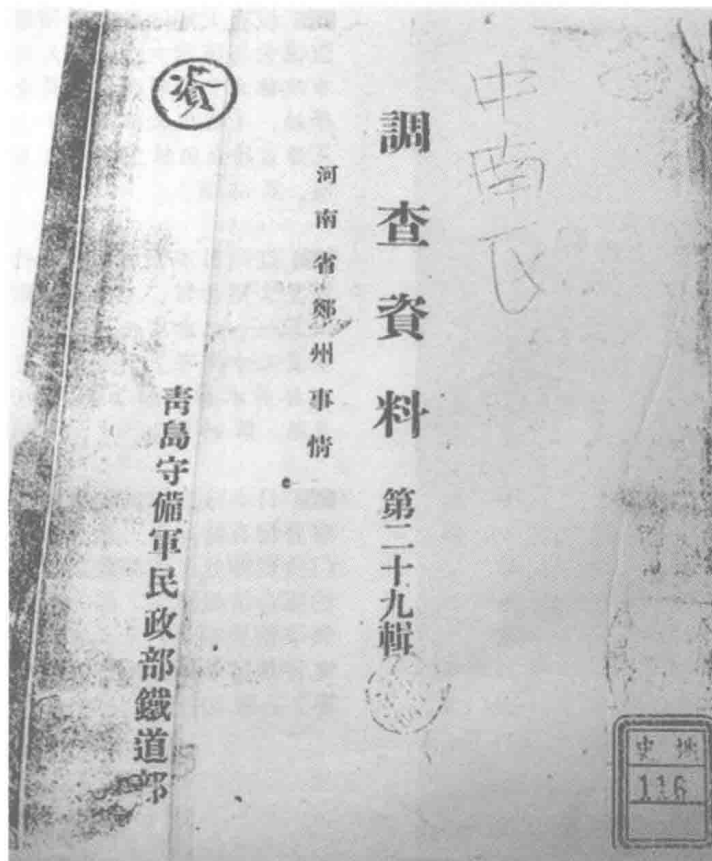 中南
調查資料 第二十九輯
河南省鄭州事情
資
青島守備軍民政部鐵道部
史地
116